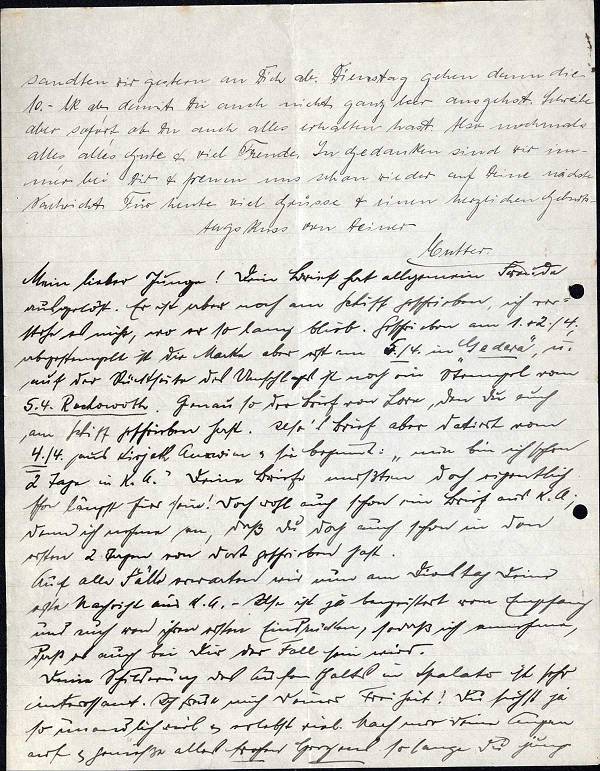 sandten wir gestern an Dich ab. Dienstag gehen dann die
10.- Mk ab damit Du auch nicht ganz leer ausgehst. Schreibe
aber sofort ob Du auch alles erhalten hast. Also nochmals
alles alles Gute & viel Freude. In Gedanken sind wir im-
mer bei Dir & freuen uns schon wieder auf Deine nächste
Nachricht. Für heute viel Grüsse & einen herzlichen Geburts-
tagskuss von Deiner
Mutter.
Mein lieber Junge! Dein Brief hat allgemein Freude
ausgelöst. Er ist aber noch am Schiff geschrieben, ich ver-
stehe es nicht, wo er so lang blieb. Geschrieben am 1. + 2./4.
abgestempelt ist die Marke aber erst am 5./4. in "Gedera", u.
auf der Rückseite des Umschlags ist noch ein Stempel vom
5.4. Rechowoth. Genau so der Brief von Lore, den Du auch
am Schiff geschrieben hast. Ilse's Brief aber datiert vom
4./4. aus Kirjath Anavim & sie beginnt: "nun bin ich schon
2 Tage in K.A." Deine Briefe müßten doch eigentlich
schon längst hier sein! Doch wohl auch schon ein Brief aus K.A.;
denn ich nehme an, daß Du doch auch schon in den
ersten 2 Tagen von dort geschrieben hast.
Auf alle Fälle erwarten wir nun am Dienstag Deine
erste Nachricht aus K.A. - Ilse ist ja begeistert vom Empfang
und auch von ihren ersten Eindrücken, sodaß ich annehme,
daß es auch bei Dir der Fall sein wird.
Deine Schilderung des Aufenthalts in Spalato ist sehr
interessant. Ich freue mich Deiner Freiheit! Du siehst ja
so unendlich viel & erlebst viel. Mach nur Deine Augen
auf & genieße alles frohen Herzens solange Du jung